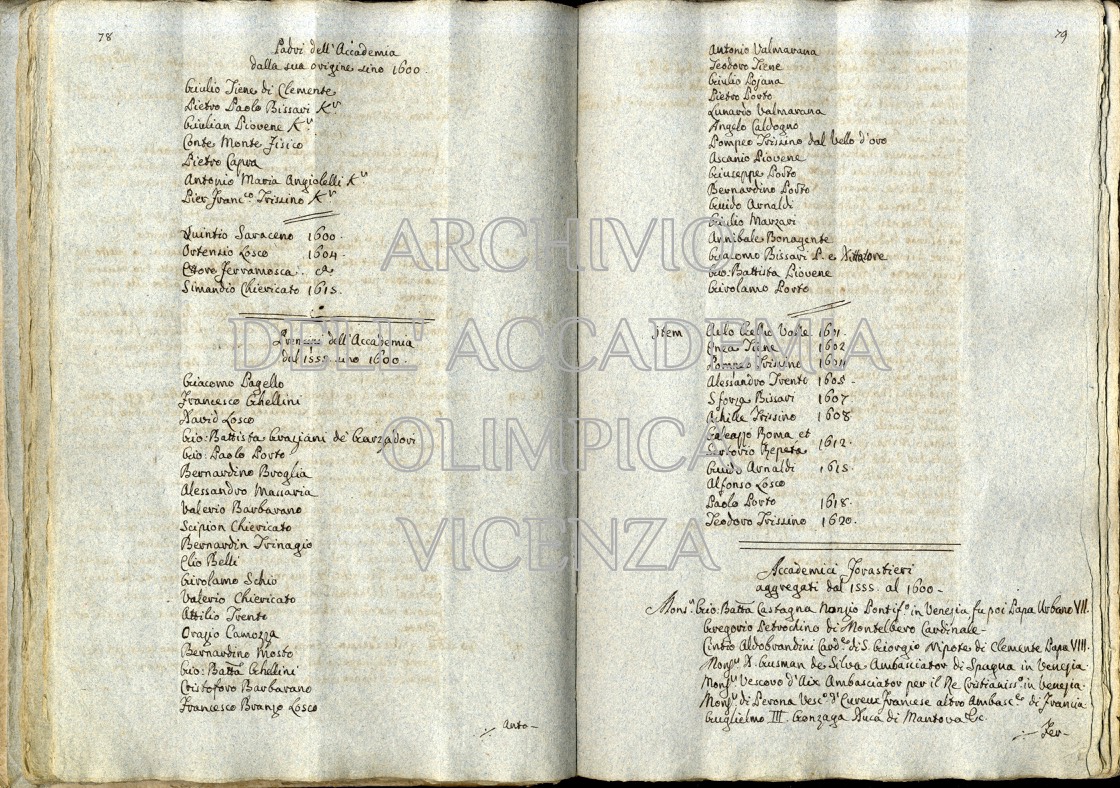 78
Padri dell'Accademia
dalla sua origine sino 1600.
Giulio Tiene di Clemente
Pietro Paolo Bissari Kr
Giulian Piovene Kr
Conte Monte Fisico
Pietro Capra
Antonio Maria Angiolelli Kr
Pier Franc.co Trissino Kr
Quintio Saraceno 1600.
Ortensio Losco 1604.
Ettore Ferramosca. ca
Simandio Chiericato 1615.
Prencipi dell'Accademia
dal 1555 sino 1600.
Giacomo Pagello
Francesco Ghellini
David Losco
Gio: Battista Graziani de' Garzadori
Gio: Paolo Porto
Bernardino Broglia
Alessandro Massaria
Valerio Barbarano
Scipion Chiericato
Bernardin Trinagio
Elio Belli
Girolamo Schio
Valerio Chiericato
Attilio Trento
Orazio Camozza
Bernardino Mosto
Gio: Batta Ghellini
Cristoforo Barbarano
Francesco Branzo Losco
Anto-
79
Antonio Valmarana
Teodoro Tiene
Giulio Pojana
Pietro Porto
Lunardo Valmarana
Angelo Caldogno
Pompeo Trissino dal Vello d'oro
Ascanio Piovene
Giuseppe Porto
Bernardino Porto
Guido Arnaldi
Giulio Marzari
Annibale Bonagente
Giacomo Bissari P. e Dittatore
Gio: Battista Piovene
Girolamo Porto
item Aulo Gelio Valle 1601.
Enea Tiene 1602
Pompeo Trissino 1604
Alessandro Trento 1605.
Sforza Bissari 1607
Achille Trissino 1608
Galeazzo Roma et
Sertorio Repeta 1612.
Guido Arnaldi 1615.
Alfonso Losco
Paolo Porto 1618.
Teodoro Trissino 1620.
Accademici Forastieri
aggregati dal 1555. al 1600-
Mons.r Gio: Batta Castagna Nonzio Pontif.o in Venezia fu poi Papa Urbano VII.
Gregorio Petrochino di Montelbero Cardinale-
Cintio Aldobrandini Card.le di S. Giorgio Nipote di Clemente Papa VIII.
Mons.r D. Gusman de Silva Ambasciator di Spagna in Venezia
Mons.r Vescovo d'Aix Ambasciator per il Re Cristianiss.o in Venezia.
Mons.r di Perona Vesc.o d'Eureux Francese altro Ambasc.re di Francia
Guglielmo III. Gonzaga Duca di Mantova &c.
Fer-
ARCHIVIO
DELL'ACCADEMIA
OLIMPICA
VICENZA